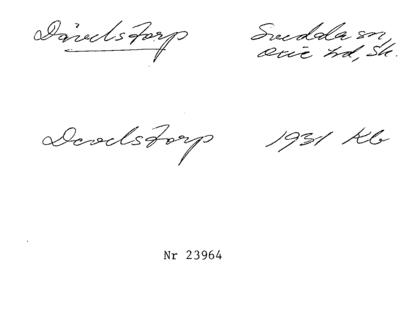 Dävelstorp Svedala sn,
Oxie hd, Sk.
Dävelstorp 1931 Kb
Nr 23964